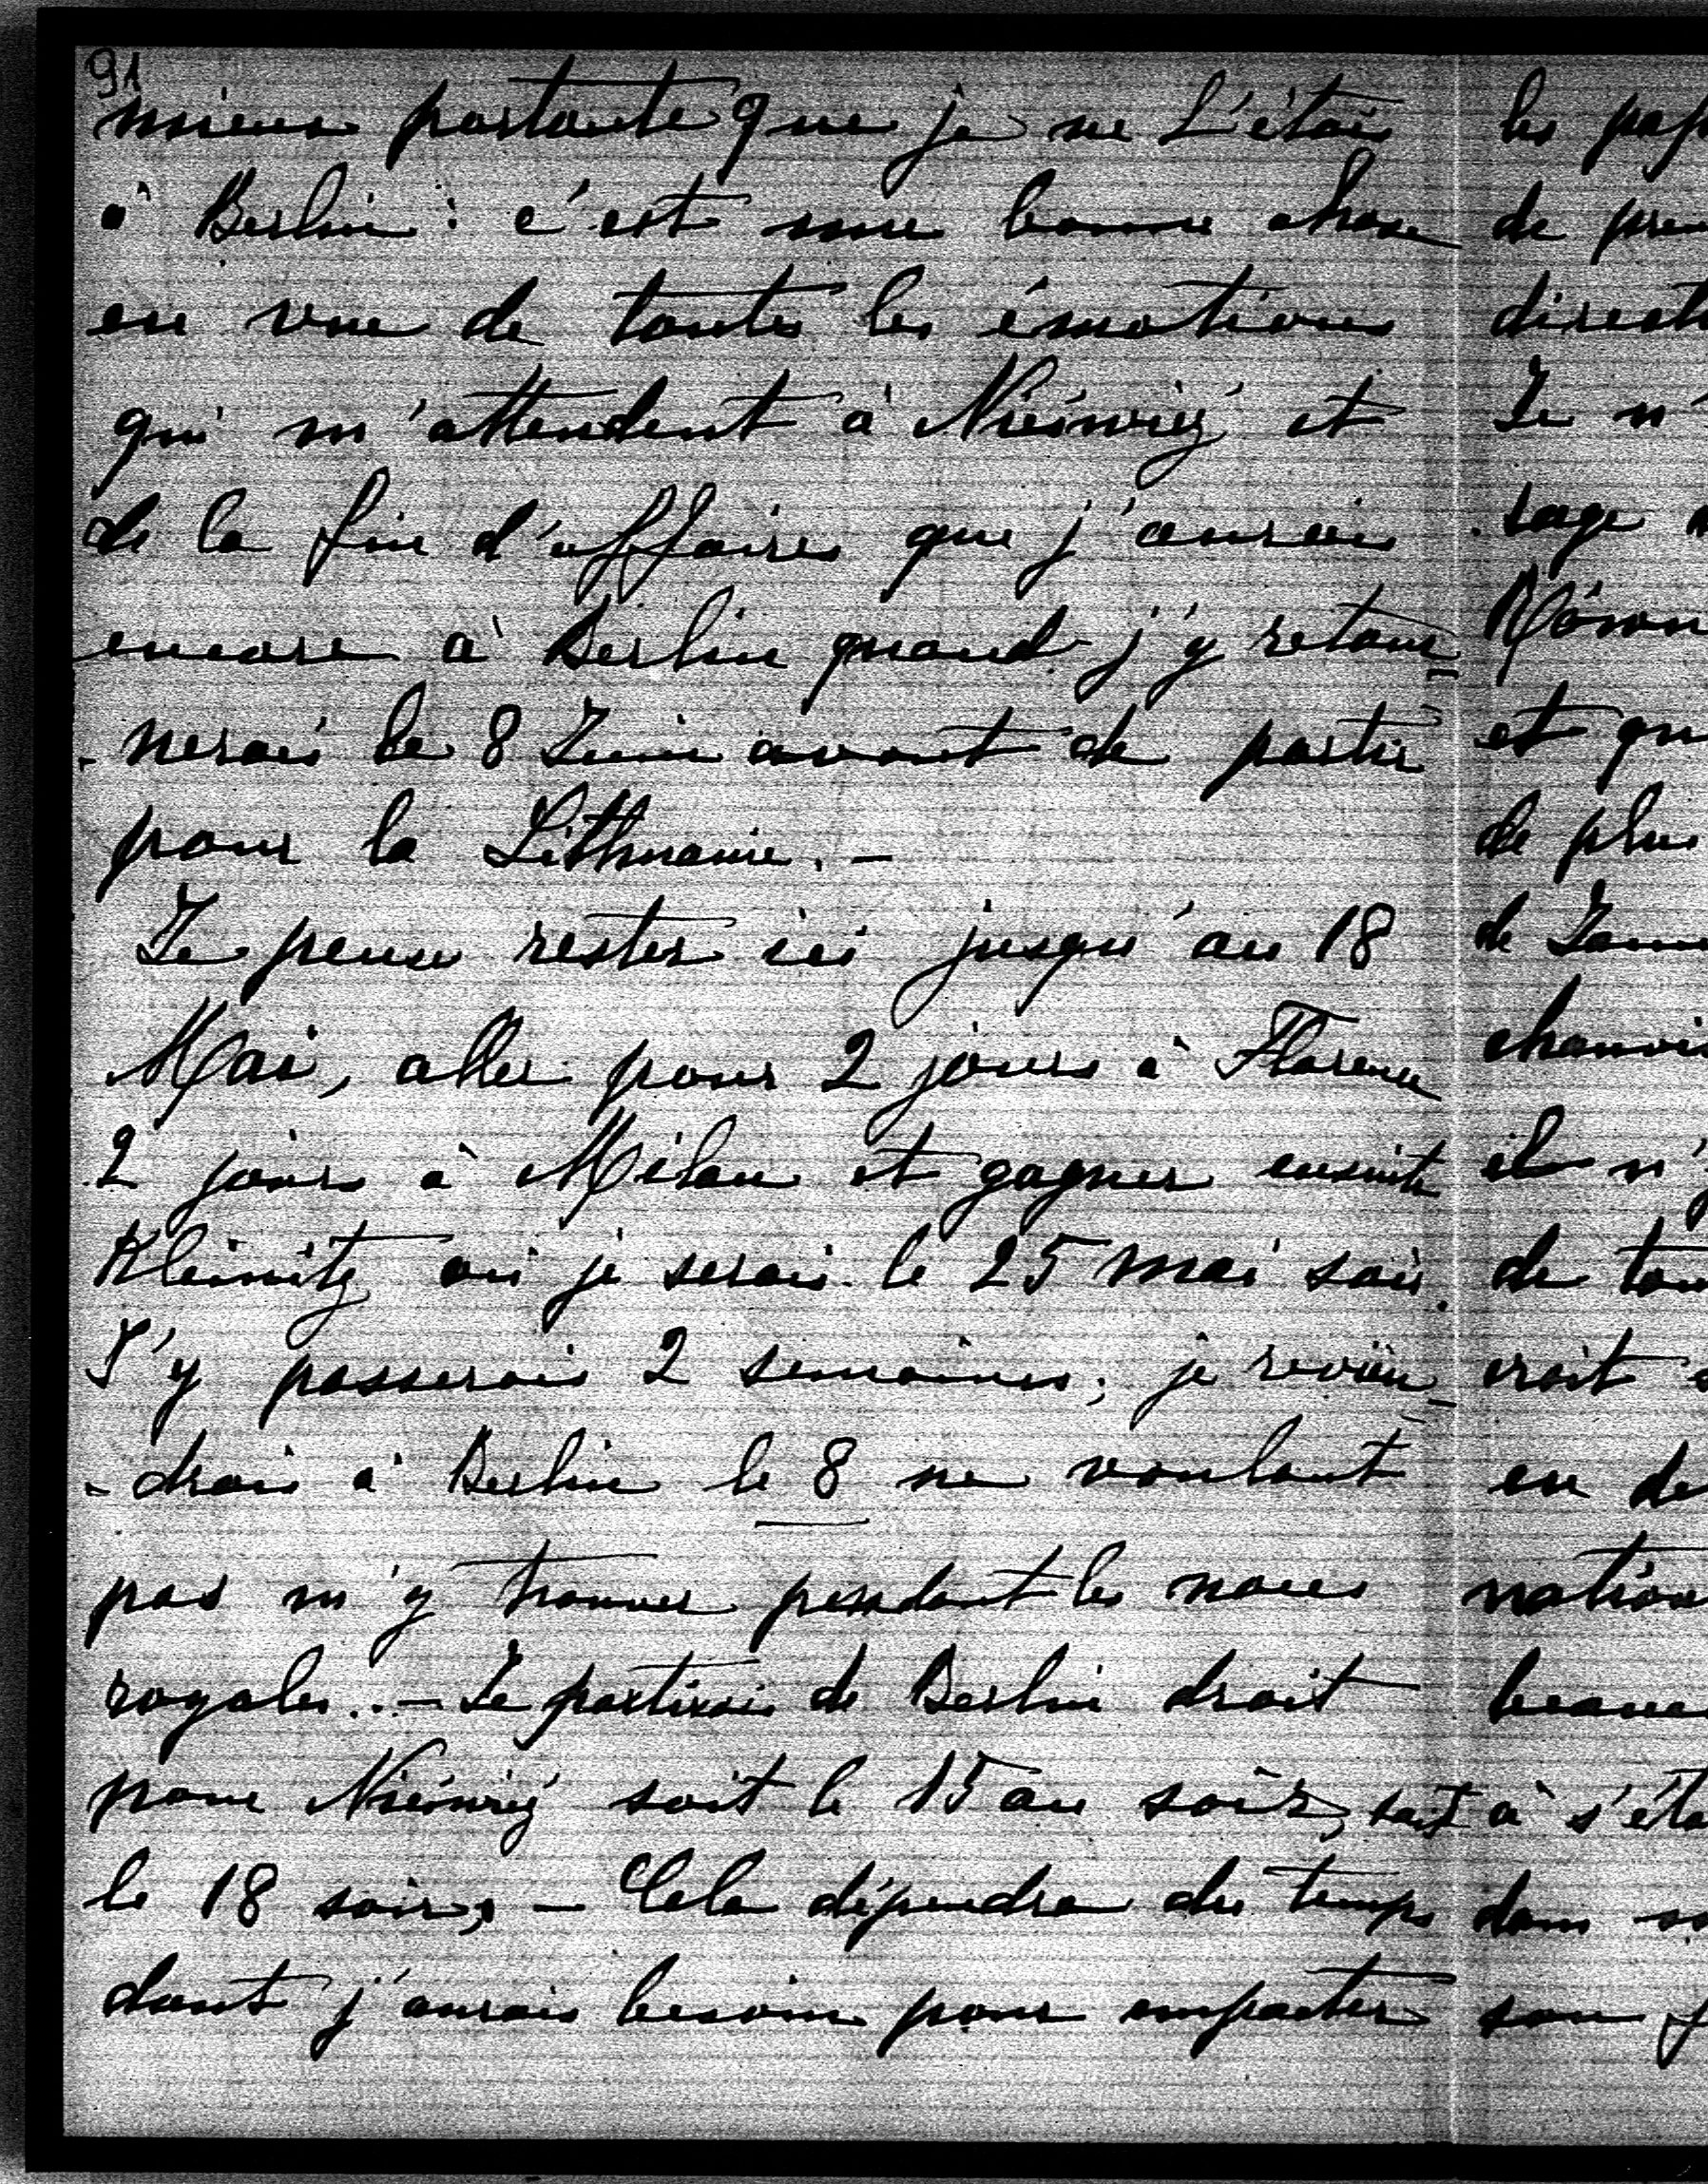 91
mieux portante que je ne l'étais
à Berlin : c'est une bonne chose
en vue de toutes les émotions
qui m'attendent à Nieśwież et
de la fin d'affaires que j'aurais
encore à Berlin quand j'y retour-
-nerais le 8 Juin avant de partir
pour la Lithuanie. –
Je peux rester ici jusqu'au 18
Mai, aller pour 2 jours à Florence
2 jours à Milan et gagner ensuite
Kleinitz où je serais le 25 mai soir.
J'y passerais 2 semaines; je revien-
-drais à Berlin le 8 ne voulant
pas m'y trouver pendant les noces
royales.. – Je partirais de Berlin droit
pour Nieśwież soit le 15 au soir, soit
le 18 soir, – Cela dépendra du temps
dont j'aurais besoin pour empaqueter
les pap
de pren
direct
Je n'
et qu
de plus
de
il n'y
de tou
croit
en de
nation
beauc
à s'éta
dans
son